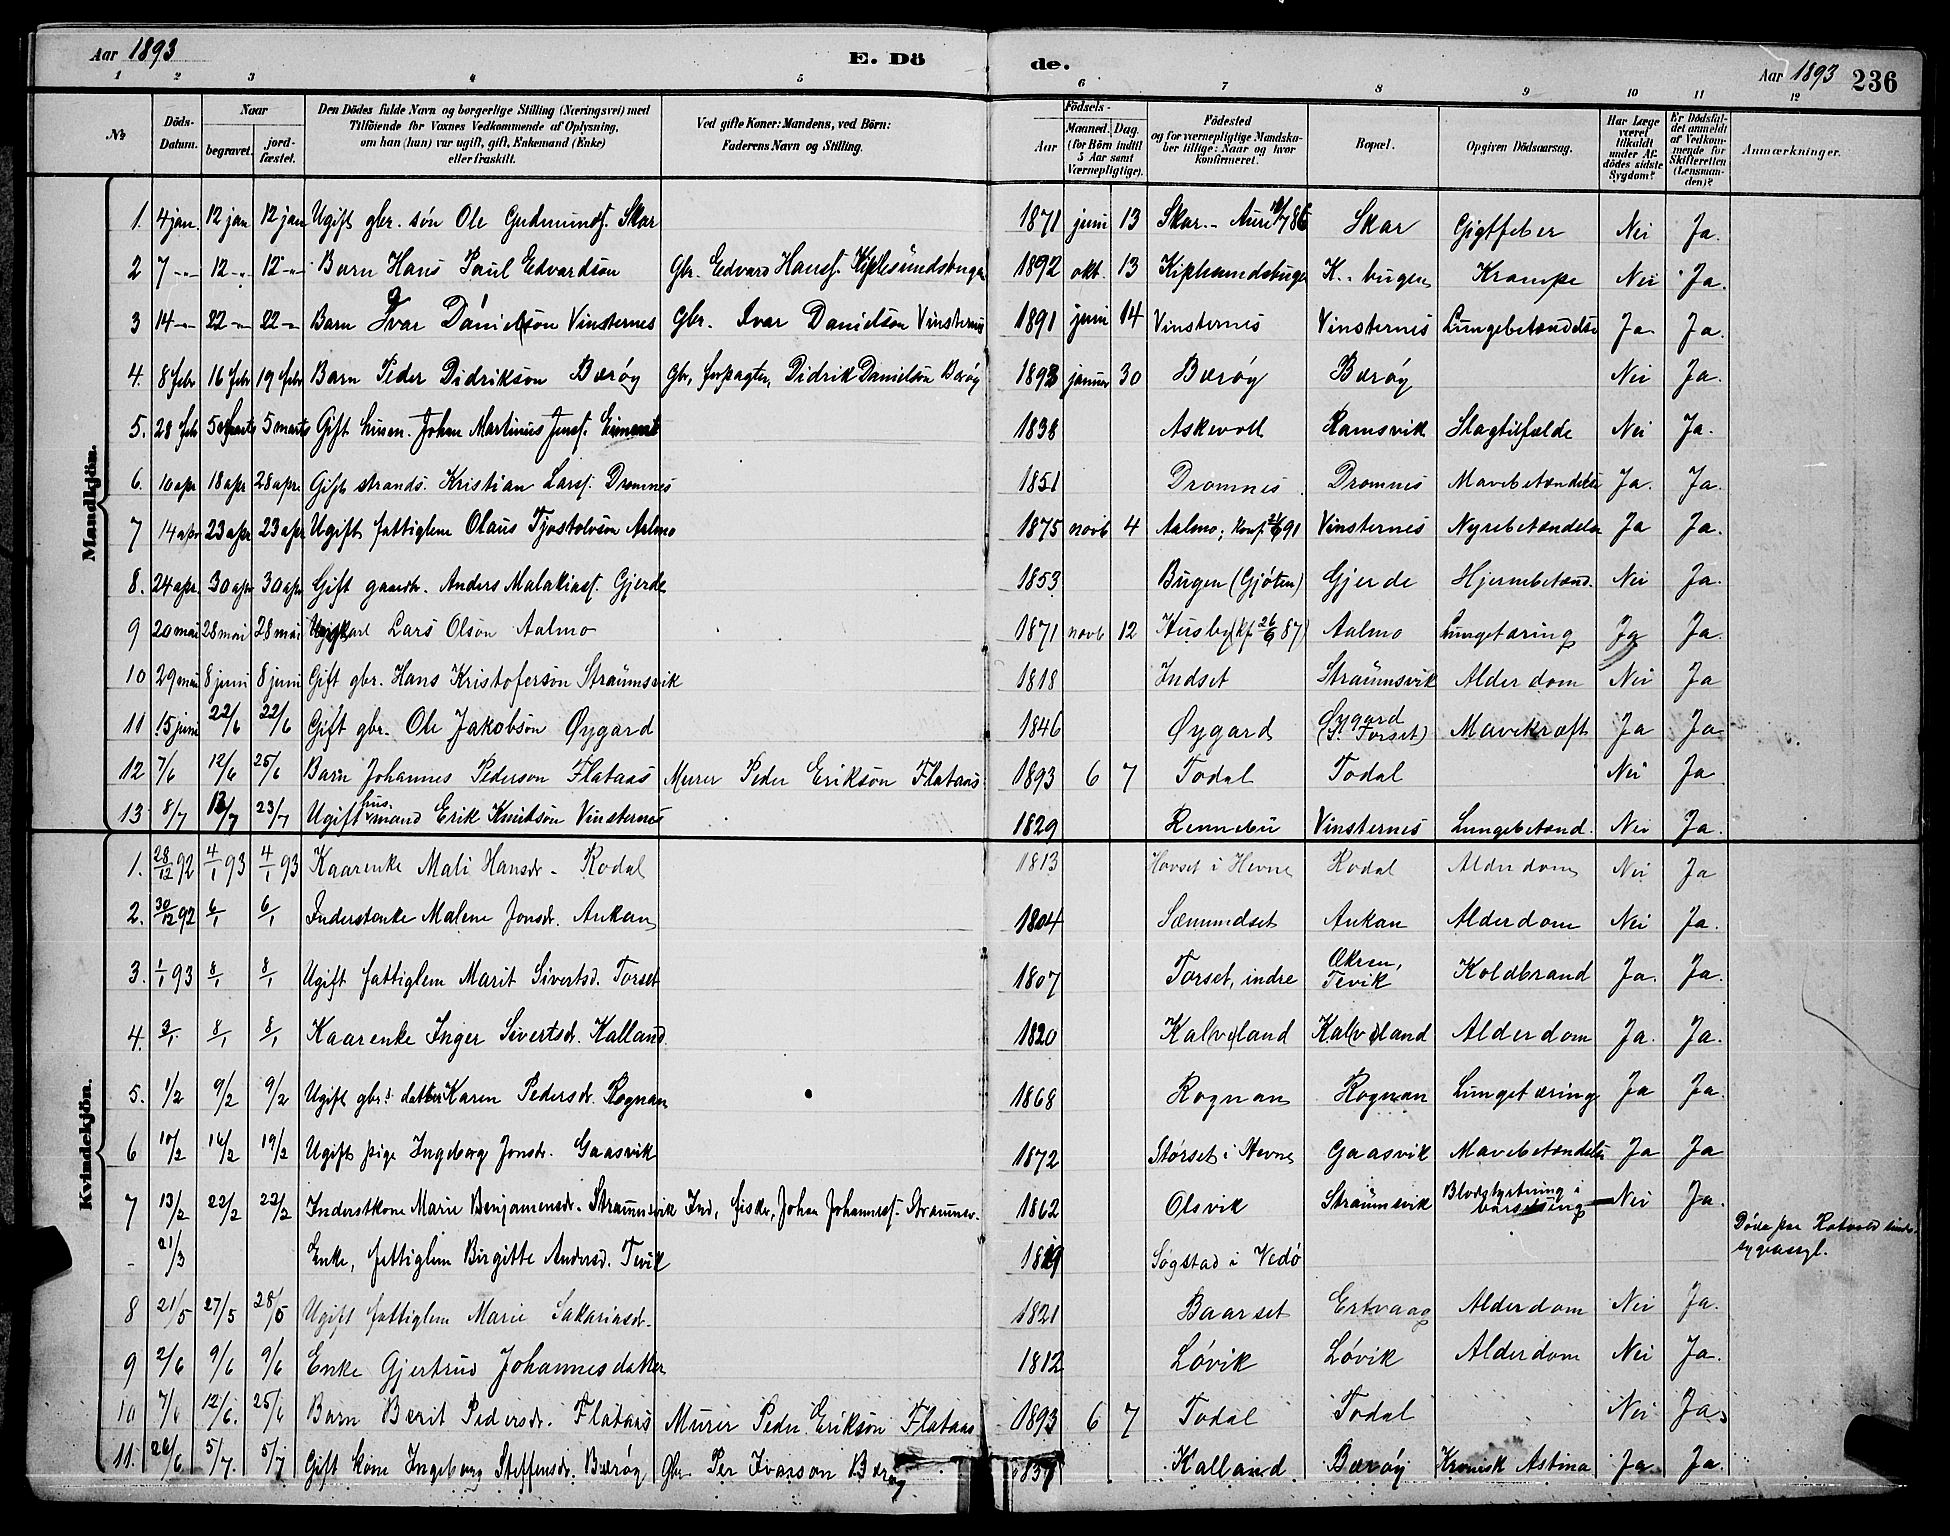 Aar 1893
E. Dö de.
Aar 1893 236
1 2 3 4 5 6 7 8 9 10 11 12
No. Döds-Datum. Naar begravet. jordfæstet. Den Dödes fulde Navn og borgerlige Stilling (Næringsvei) med Tilföiende for Voxnes Vedkommende af Oplysning, om han (hun) var ugift, gift, Enkemand (Enke) eller fraskilt. Ved gifte Koner: Mandens, ved Börn: Faderens Navn og Stilling. Födsels- Aar Maaned. Dag. (for Börn indtil 5 Aar samt Værnepligtige). Födested og for værnepligtige Mandskaber tillige: Naar og hvor konfirmeret. Bopæl. Opgiven Dödsaarsag. Har Læge været tilkaldt under Afdödes sidste Sygdom? Er Dödsfaldet anmeldt af Vedkommende for Skifteretten (Lensmanden)? Anmærkninger.
Mandkjön.
1. 4 jan. 12 jan 12 jan Ugift gbr. søn Ole Gudmunds. Skar 1871 juni 13 Skar - Aure Skar Gigtfeber Nei Ja.
2 7 -"- 12 -"- 12 -"- Barn Hans Paul Edvardsøn Gbr. Edvard Hans. 1892 okt. 13 K.- bugen Krampe Nei Ja.
3 14 -"- 22 -"- 22 -"- Barn Ivar Danielsøn Vinsternes Gbr. Ivar Danielsøn Vinsternes 1891 juni 14 Vinsternes Vinsternes Lungebetændelse Ja Ja.
4. 8 febr 16 febr 19 febr Barn Peder Didriksøn Bærøy Gbr, forpagter, Didrik Danielsøn Bærøy 1893 januar 30 Bærøy Bærøy Nei Ja.
5. 28 feb 5 marts 5 marts Gift husm. Johan Martinus Jens. 1838 Askevold Ramsvik Slagtilfælde Nei Ja.
6. 10 apr 18 apr 28 apr. Gift strands. Kristian Lars. Dromnes 1851 Dromnes Dromnes Mavebetændelse Ja. Ja.
7 14 apr 23 apr 23 apr Ugift fattiglem Olaus Tjostolvsøn Aalmo 1875 novb 4 Aalmo; Konf. 21/6 91 Vinsternes Nyrebetændelse Ja Ja.
8. 24 apr. 30 apr 30 apr Gift gaardb. Anders Malakias. Gjerde 1853 Bugen (Gjøten) Gjerde Hjernebetænd. Nei Ja.
9 20 mai 28 mai 28 mai Lars Olsøn Aalmo 1871 novb 12 Husby (kf. 26/6 87) Aalmo Lungetæring Ja Ja.
10 29 mai 8 juni 8 juni Gift gbr. Hans Kristofersøn Straumsvik 1818 Indset Straumsvik Alderdom Nei Ja
11 15 juni 22/6 22/6 Gift gbr. Ole Jakobsøn Øygard 1846 Øygard Øygard (S. Torset) Mavekræft Ja Ja
12 7/6 12/6 25/6 Barn Johannes Pedersøn Flataas Murer Peder Eriksøn Flataas 1893 6 7 Todal Todal Nei Ja
13 8/7 13/7 23/7 Ugift husmand Erik Knutsøn Vinsternes 1829 Rennebu Vinsternes Lungebetænd. Nei Ja.
Kvindekjön.
1. 28/12 92 4/1 93 4/1 93 Kaarenke Mali Hansdr. Rodal 1813 Hovset i Hevne Rodal Alderdom Nei Ja
2. 30/12 92 6/1 6/1 Inderstenke Malene Jonsdr. Aukan 1804 Sæmundset Aukan Alderdom Nei Ja.
3. 1/1 93 8/1 8/1 Ugift fattiglem Marit Sivertsd. Torset 1807 Torset, indre Økren, Tevik Koldbrand Ja. Ja.
4. 3/1 8/1 8/1 Kaarenke Inger Sivertsdr. Kalland 1820 Kal(ve)land Kal(ve)land Alderdom Ja. Ja.
5. 1/2 9/2 9/2 Ugift gbr.s datter Karen Pedersdr. Rognan 1868 Rognan Rognan Lungetæring Ja Ja.
6 10/2 16/2 19/2 Ugift pige Ingeborg Jonsdr. Gaasvik 1872 Størset i Hevne Gaasvik Mavebetændelse Ja Ja
7 13/2 22/2 22/2 Inderstkone Marie Benjamensdr. Straumsvik Ind, fisker, Johan Johannes. Straumsv. 1862 Olsvik Straumsvik Blodstyrtning i barselseng Nei Ja.
- 21/3 Enke, fattiglem Birgitte Andersd. Tevik 1819 Søgstad i Vedø Døde paa Rotvold sindssygeasyl.
8 21/5 27/5 28/5 Ugift fattiglem Marie Sakariasdr. 1821 Baarset Ertvaag Alderdom Nei Ja.
9 2/6 9/6 9/6 Enke Gjertrud Johannesdatter 1812 Løvik Løvik Alderdom Nei Ja.
10 7/6 12/6. 25/6 Barn Berit Pedersdr. Flataas Murer Peder Eriksøn Flataas 1893 6 7 Todal Todal Nei Ja
11. 26/6 5/7. 5/7 Gift kone Ingeborg Steffensdr. Bærøy Gbr. Per Ivarsøn Bærøy Kalland Bærøy Kronisk Astma Ja Ja.